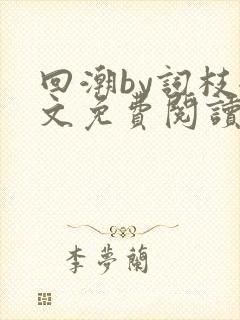 回潮by詞枝
文免費閱讀
李夢蘭